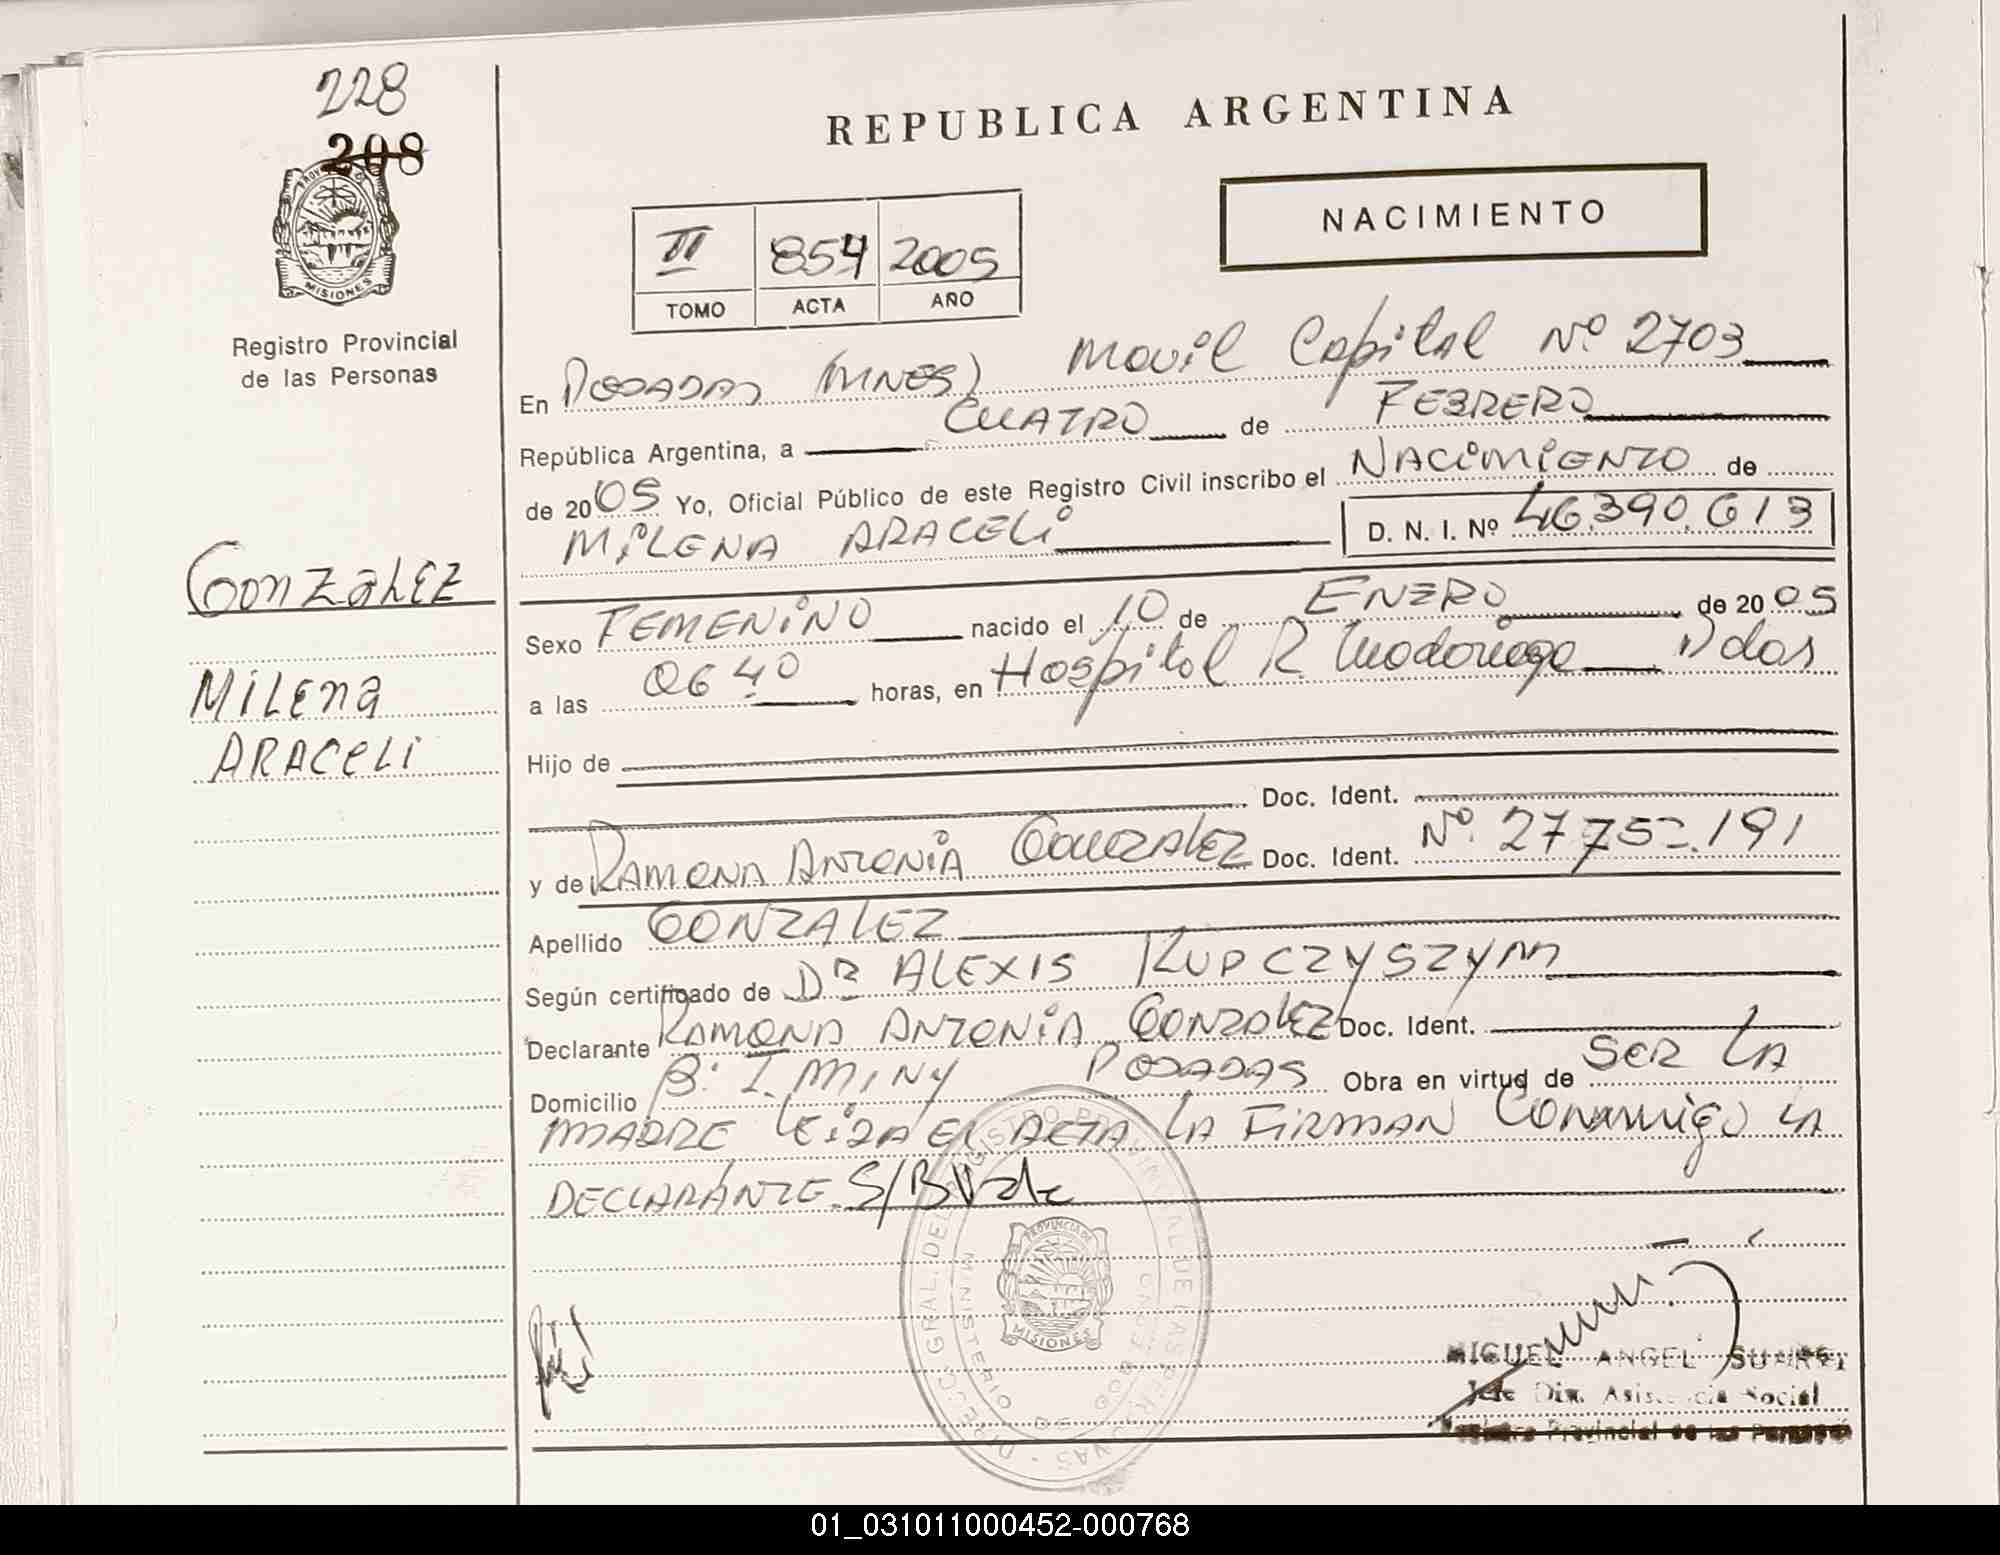 228
208
MISIONES
Registro Provincial
de las Personas
REPUBLICA ARGENTINA
NACIMIENTO
II 854 2005
TOMO ACTA AÑO
En POSADAS (MNES) Movil Capital Nº 2703
República Argentina, a CUATRO de FEBRERO
de 2005 Yo, Oficial Público de este Registro Civil inscribo el NACIMIENTO de
MILENA ARACELI D. N. I. Nº 46.390.613
GONZALEZ
MILENA
ARACELI
Sexo FEMENINO nacido el 10 de ENERO de 2005
a las 06 40 horas, en Hospital R. Pdas
Hijo de
Doc. Ident.
y de RAMONA ANTONIA GONZALEZ Doc. Ident. Nº 27.752.191
Apellido GONZALEZ
Según certificado de Dr ALEXIS KUPCZYSZYN
Declarante RAMONA ANTONIA GONZALEZ Doc. Ident.
Domicilio Bº I. MINY POSADAS Obra en virtud de SER LA
MADRE LEIDA EL ACTA LA FIRMAN Conmigo LA
DECLARANTE. S/B
MIGUEL ANGEL SUAREZ
Jefe Div. Asistencia Social
Registro Provincial de las Personas
PROVINCIA DE
MISIONES
MINISTERIO DE GOBIERNO
01_031011000452-000768